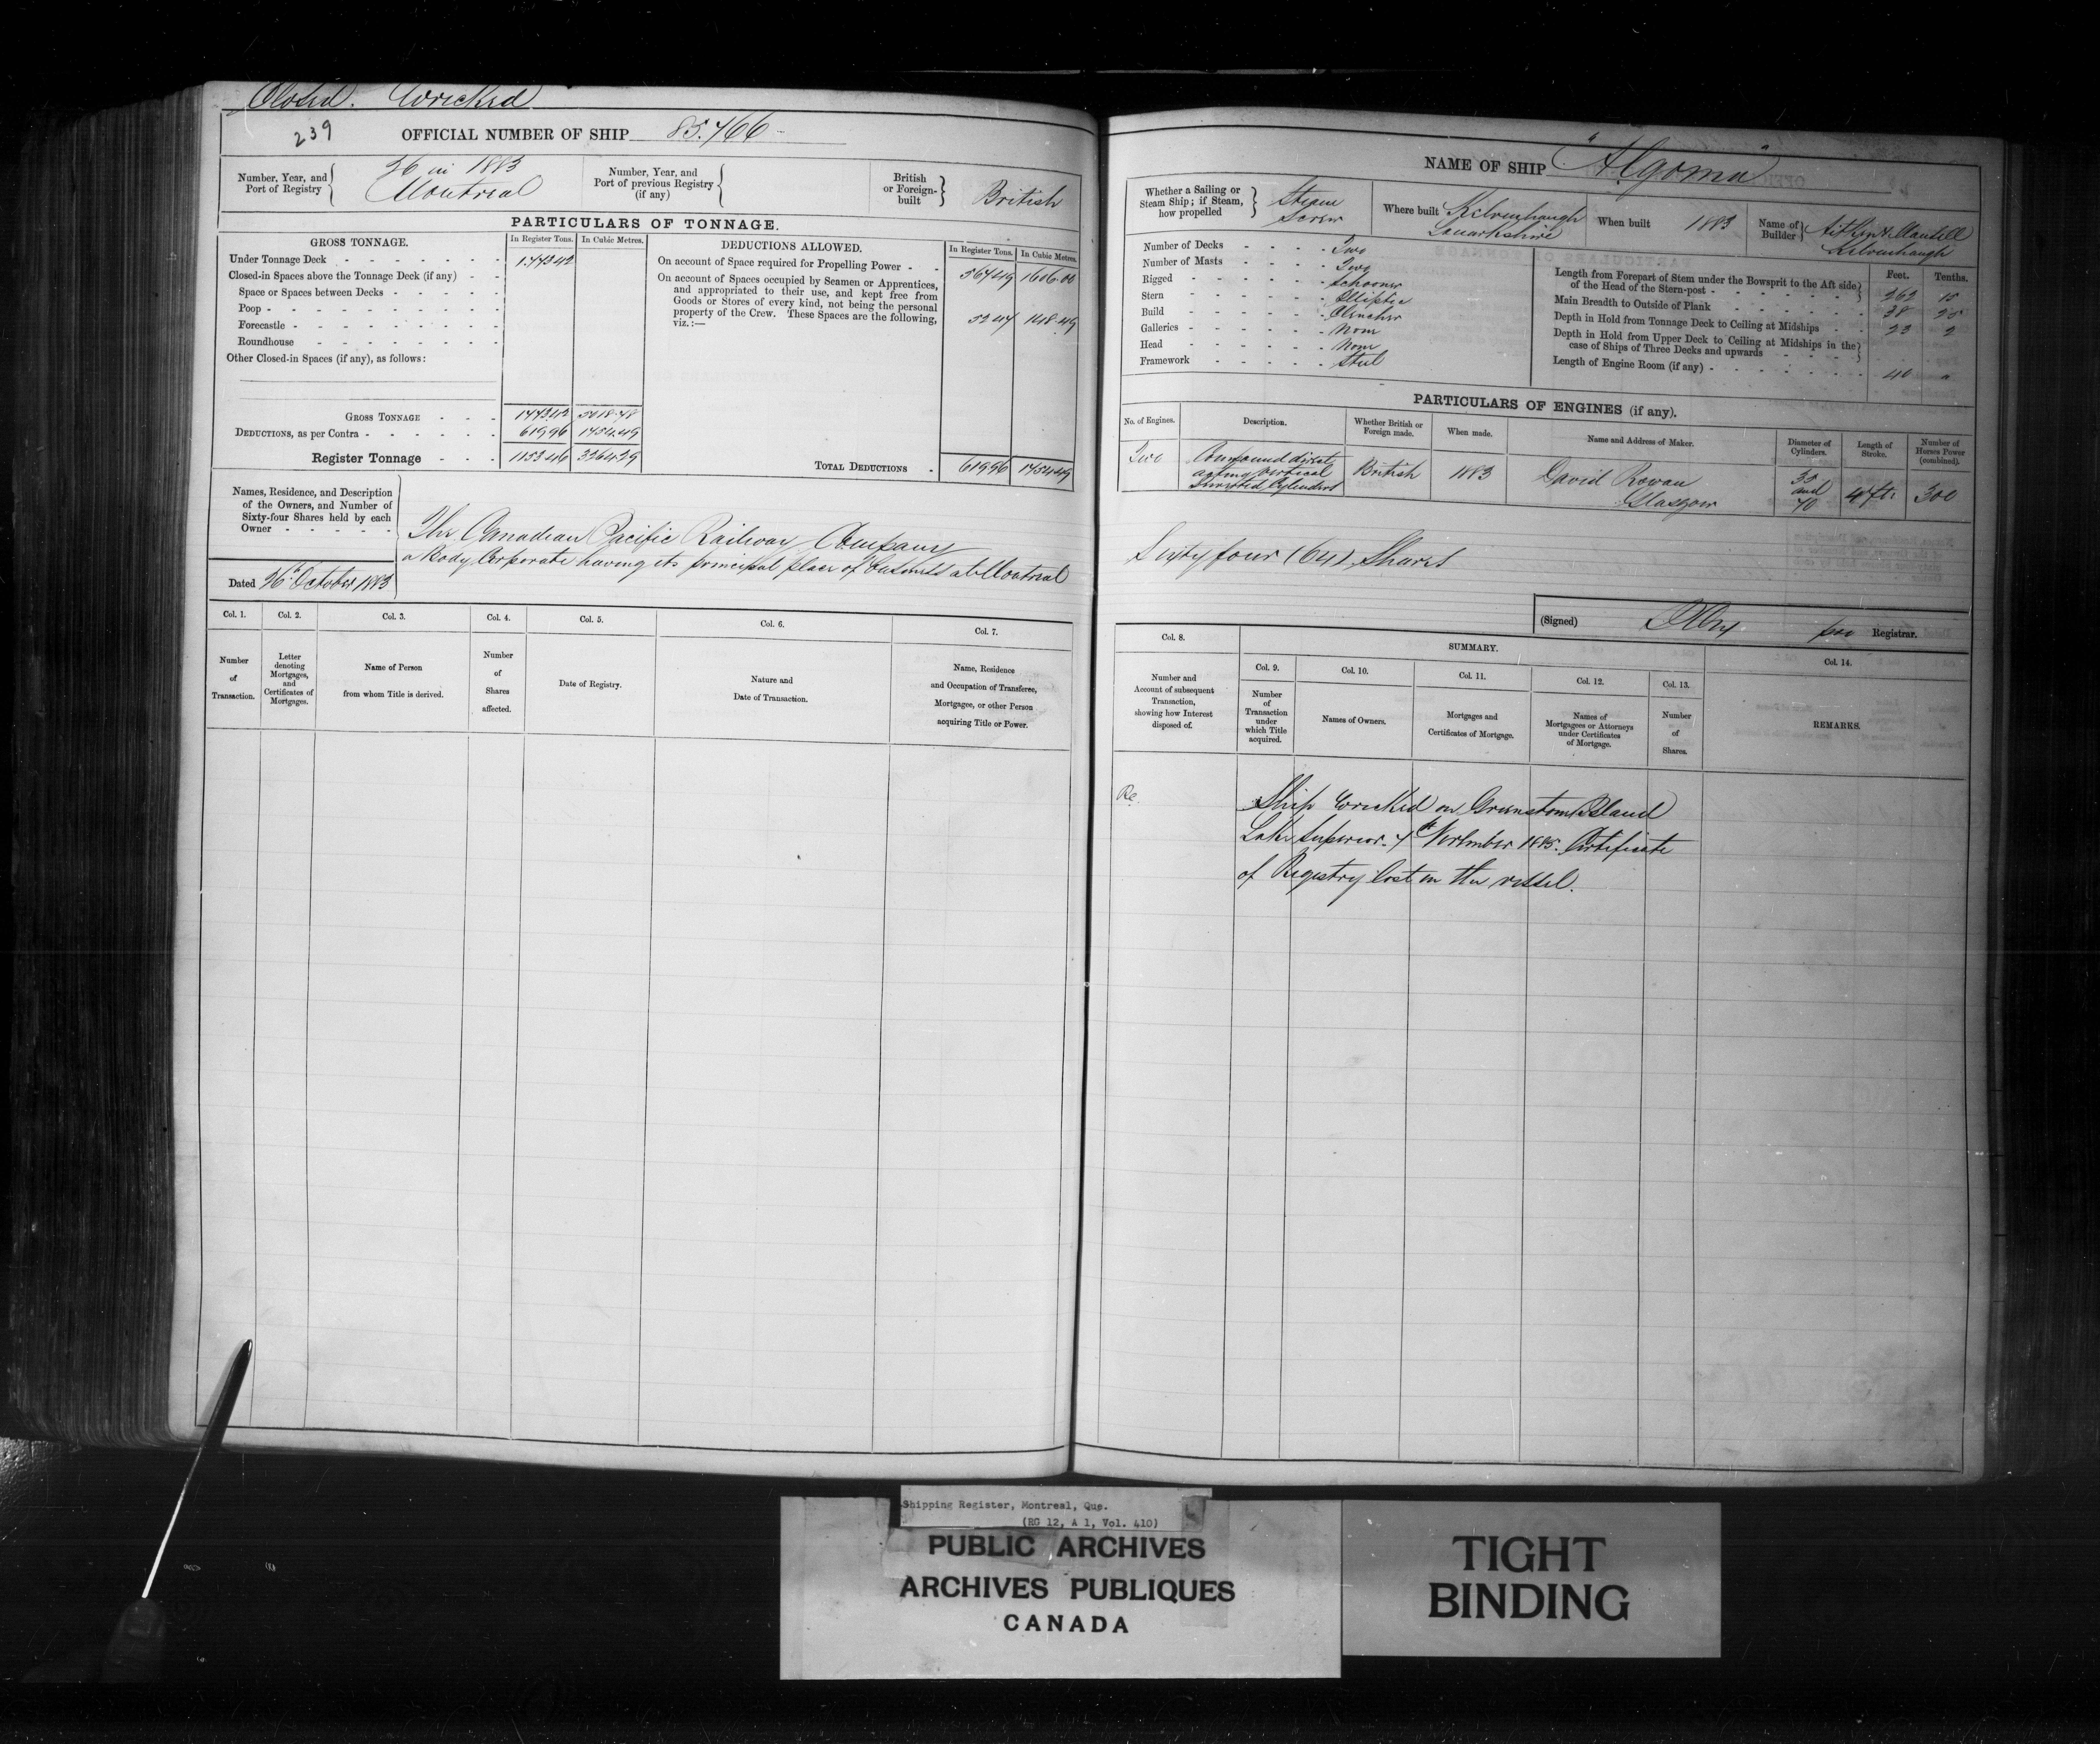 Closed. Wrecked
239 OFFICIAL NUMBER OF SHIP 85.766
Number, Year, and Port of Registry 26 in 1883 Montreal
Number, Year, and Port of previous Registry (if any)
British or Foreign-built British
PARTICULARS OF TONNAGE.
GROSS TONNAGE. In Register Tons. In Cubic Metres.
Under Tonnage Deck 1773.42
Closed-in Spaces above the Tonnage Deck (if any)
Space or Spaces between Decks
Poop
Forecastle
Roundhouse
Other Closed-in Spaces (if any), as follows:
GROSS TONNAGE 1773.42 5018.78
DEDUCTIONS, as per Contra 619.96 1754.49
Register Tonnage 1153.46 3264.29
DEDUCTIONS ALLOWED. In Register Tons. In Cubic Metres.
On account of Space required for Propelling Power 567.49 1606.00
On account of Spaces occupied by Seamen or Apprentices,
and appropriated to their use, and kept free from
Goods or Stores of every kind, not being the personal
property of the Crew. These Spaces are the following,
viz.:— 52.47 148.49
TOTAL DEDUCTIONS 619.96 1754.49
Names, Residence, and Description
of the Owners, and Number of
Sixty-four Shares held by each
Owner
The Canadian Pacific Railway Company
a Body Corporate having its principal place of business at Montreal
Dated 26th October 1883
Col. 1. Col. 2. Col. 3. Col. 4. Col. 5. Col. 6. Col. 7.
Number of Transaction.
Letter denoting Mortgages, and Certificates of Mortgages.
Name of Person from whom Title is derived.
Number of Shares affected.
Date of Registry.
Nature and Date of Transaction.
Name, Residence and Occupation of Transferee, Mortgagee, or other Person acquiring Title or Power.
NAME OF SHIP "Algoma"
Whether a Sailing or Steam Ship; if Steam, how propelled Steam Screw
Where built Kelvinhaugh Lanarkshire
When built 1883
Name of Builder Aitken & Mansell Kelvinhaugh
Number of Decks Two
Number of Masts Two
Rigged Schooner
Stern Elliptic
Build Clencher
Galleries None
Head None
Framework Steel
Feet. Tenths.
Length from Forepart of Stem under the Bowsprit to the Aft side
of the Head of the Stern-post 262
Main Breadth to Outside of Plank 38
Depth in Hold from Tonnage Deck to Ceiling at Midships 23 2
Depth in Hold from Upper Deck to Ceiling at Midships in the
case of Ships of Three Decks and upwards
Length of Engine Room (if any) 40
PARTICULARS OF ENGINES (if any).
No. of Engines. Description. Whether British or Foreign made. When made. Name and Address of Maker. Diameter of Cylinders. Length of Stroke. Number of Horses Power (combined).
Two Compound direct acting vertical Inverted Cylinders British 1883 David Rowan Glasgow 35 and 70 4 ft. 300
Sixty four (64) Shares
(Signed) Registrar.
Col. 8. SUMMARY. Col. 14.
Col. 9. Col. 10. Col. 11. Col. 12. Col. 13.
Number and Account of subsequent Transaction, showing how Interest disposed of.
Number of Transaction under which Title acquired.
Names of Owners.
Mortgages and Certificates of Mortgage.
Names of Mortgagees or Attorneys under Certificates of Mortgage.
Number of Shares.
REMARKS.
Ship wrecked on Greenstone Island
Lake Superior. 7th November 1885. Certificate
of Registry lost in the vessel.
Shipping Register, Montreal, Que.
(RG 12, A 1, Vol. 410)
PUBLIC ARCHIVES
ARCHIVES PUBLIQUES
CANADA
TIGHT
BINDING